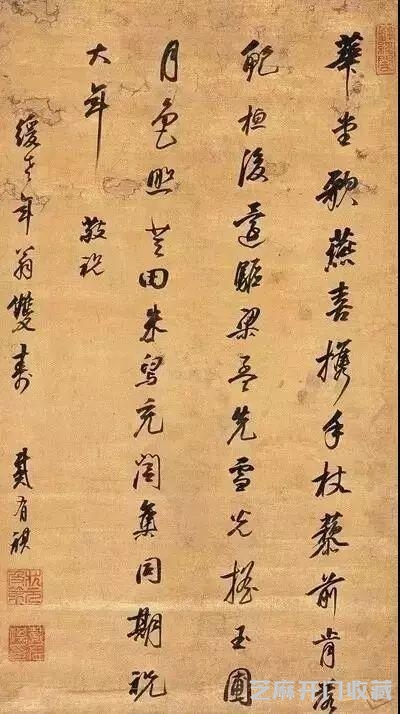 華堂歌燕喜攜手杖藜前肯落
鮑桓後還驅梁孟先雪光搖玉圃
月色照芝田朱舄充閭集同期祝
大年 敬祝
緩老年翁雙壽 戴有祺
芝麻开门收藏